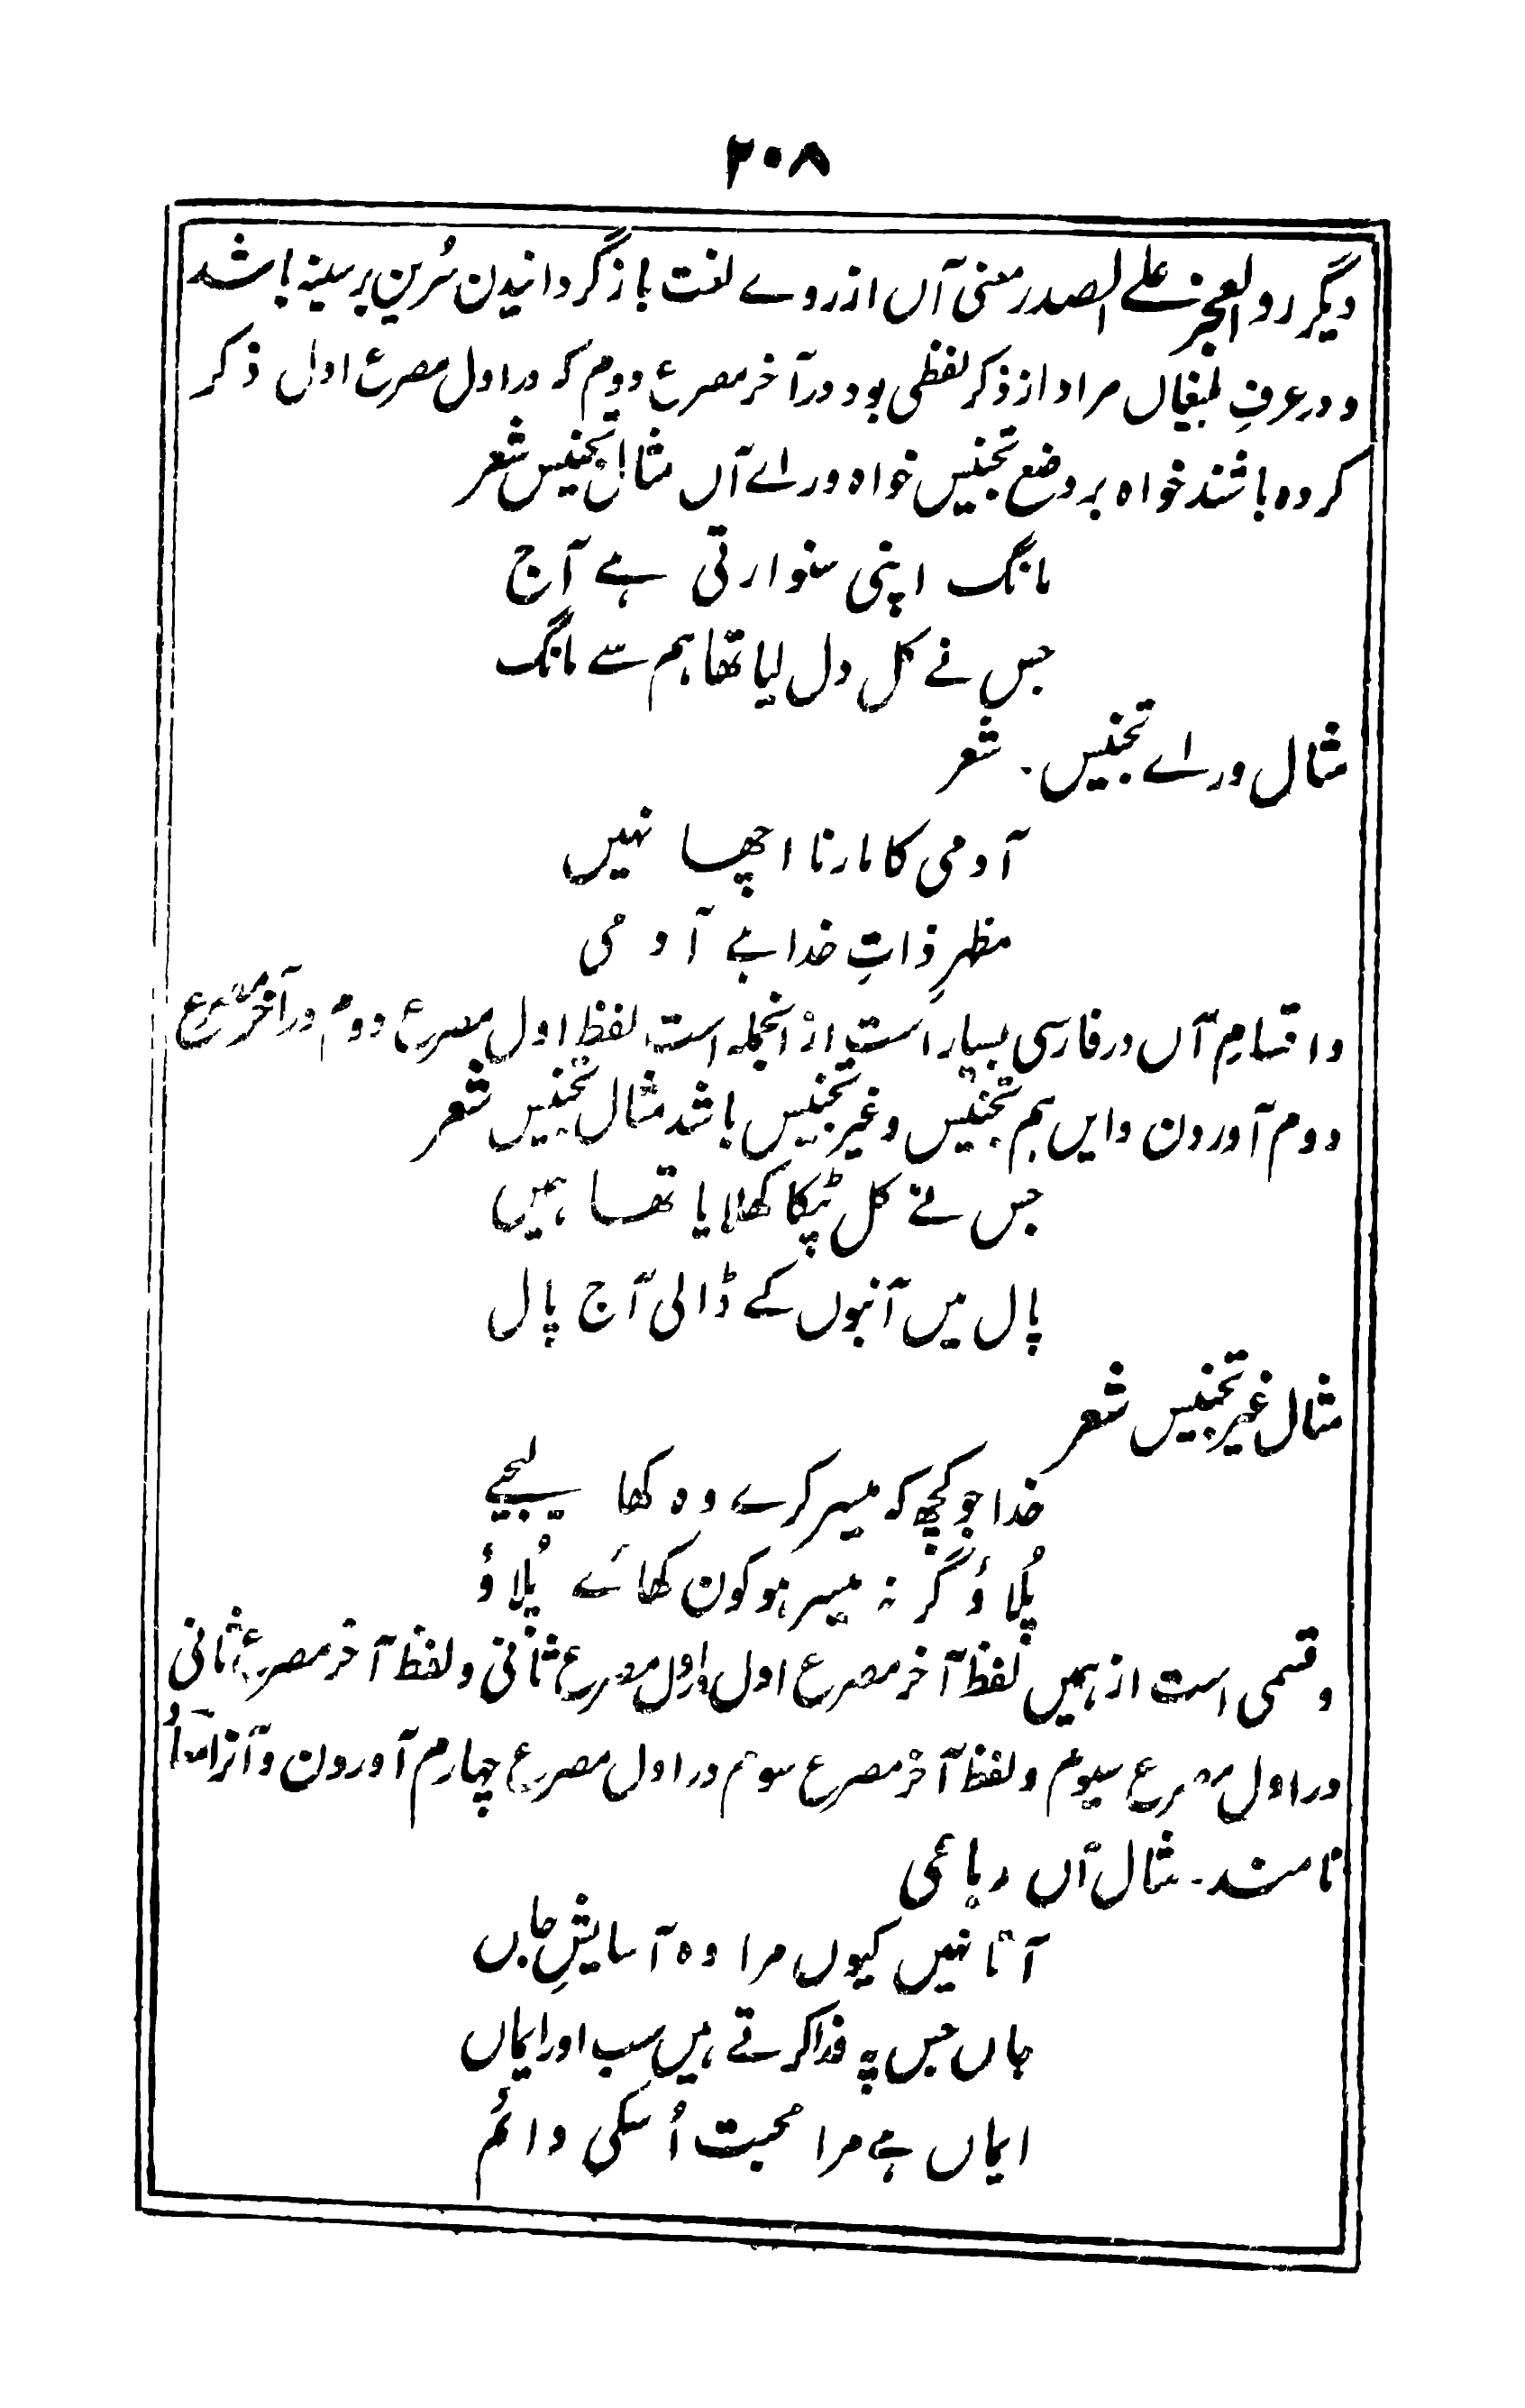 ۲۰۸
دیگر رد العجز علے الصدر معنی آں از روے لغت باز گردانیدن سُرین بر سینہ باشد
و در عرفِ بلیغاں مراد از ذکر لفظی بود در آخر مصرع دوم کہ در اول مصرع اول ذکر
کردہ باشند خواہ بر وضع تجنیس خواہ وراے آں مثال تجنیس شعر
مانگ اپنی سنوارتی ہے آج
جس نے کل دل لیا تھا ہم سے مانگ
مثال وراے تجنیس ۔ شعر
آدمی کا مارنا اچھا نہیں
مظہرِ ذاتِ خدا ہے آدمی
و اقسامِ آں در فارسی بسیار است از انجملہ است لفظ اول مصرع دوم در آخر مصرع
دوم آوردن و ایں ہم تجنیس و غیر تجنیس باشد مثال تجنیس شعر
جس نے کل ٹپکا کھلایا تھا ہمیں
پال میں آنبوں کے ڈالی آج پال
مثال غیر تجنیس شعر
خدا جو کچھ کہ میسر کرے وہ کھا لیجیے
پُلاؤ گر نہ میسر ہو کون کھائے پُلاؤ
و قسمی است از ہمیں لفظ آخر مصرع اول اول مصرع ثانی و لفظ آخر مصرع ثانی
در اول مصرع سیوم و لفظ آخر مصرع سوم در اول مصرع چہارم آوردن و آنرا
نامند ۔ مثال آں رباعی
آتا نہیں کیوں مرا وہ آسایشِ جاں
جاں جس پہ فدا کرتے ہیں سب اور ایماں
ایماں ہے مرا محبت اُسکی دائم